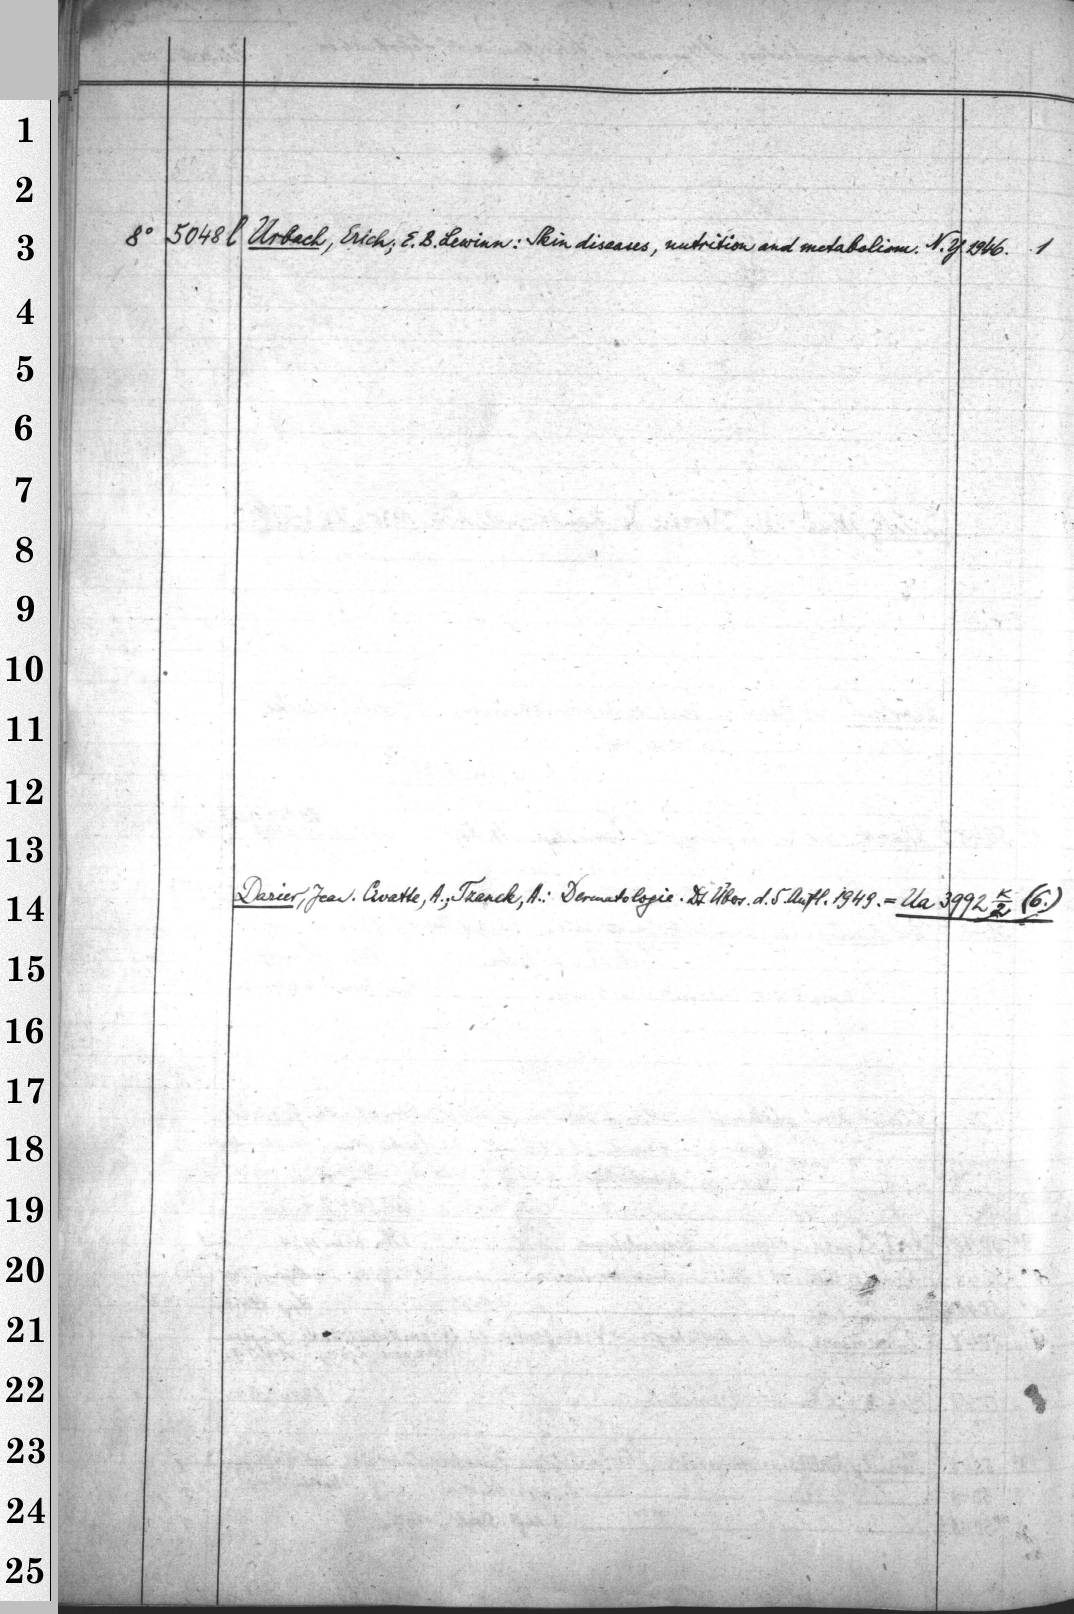 1
2
3
8° 5048 l Urbach, Erich; E. B. Lewinn: Skin diseases, nutrition and metabolism. N.Y 1946. 1
4
5
6
7
8
9
10
11
12
13
14
Darier, Jean. Civatte, A.; Tzanck, A.: Dermatologie. Dt Übers. d. 5. Aufl. 1949. = Ua 3992 K/2 (6.)
15
16
17
18
19
20
21
22
23
24
25